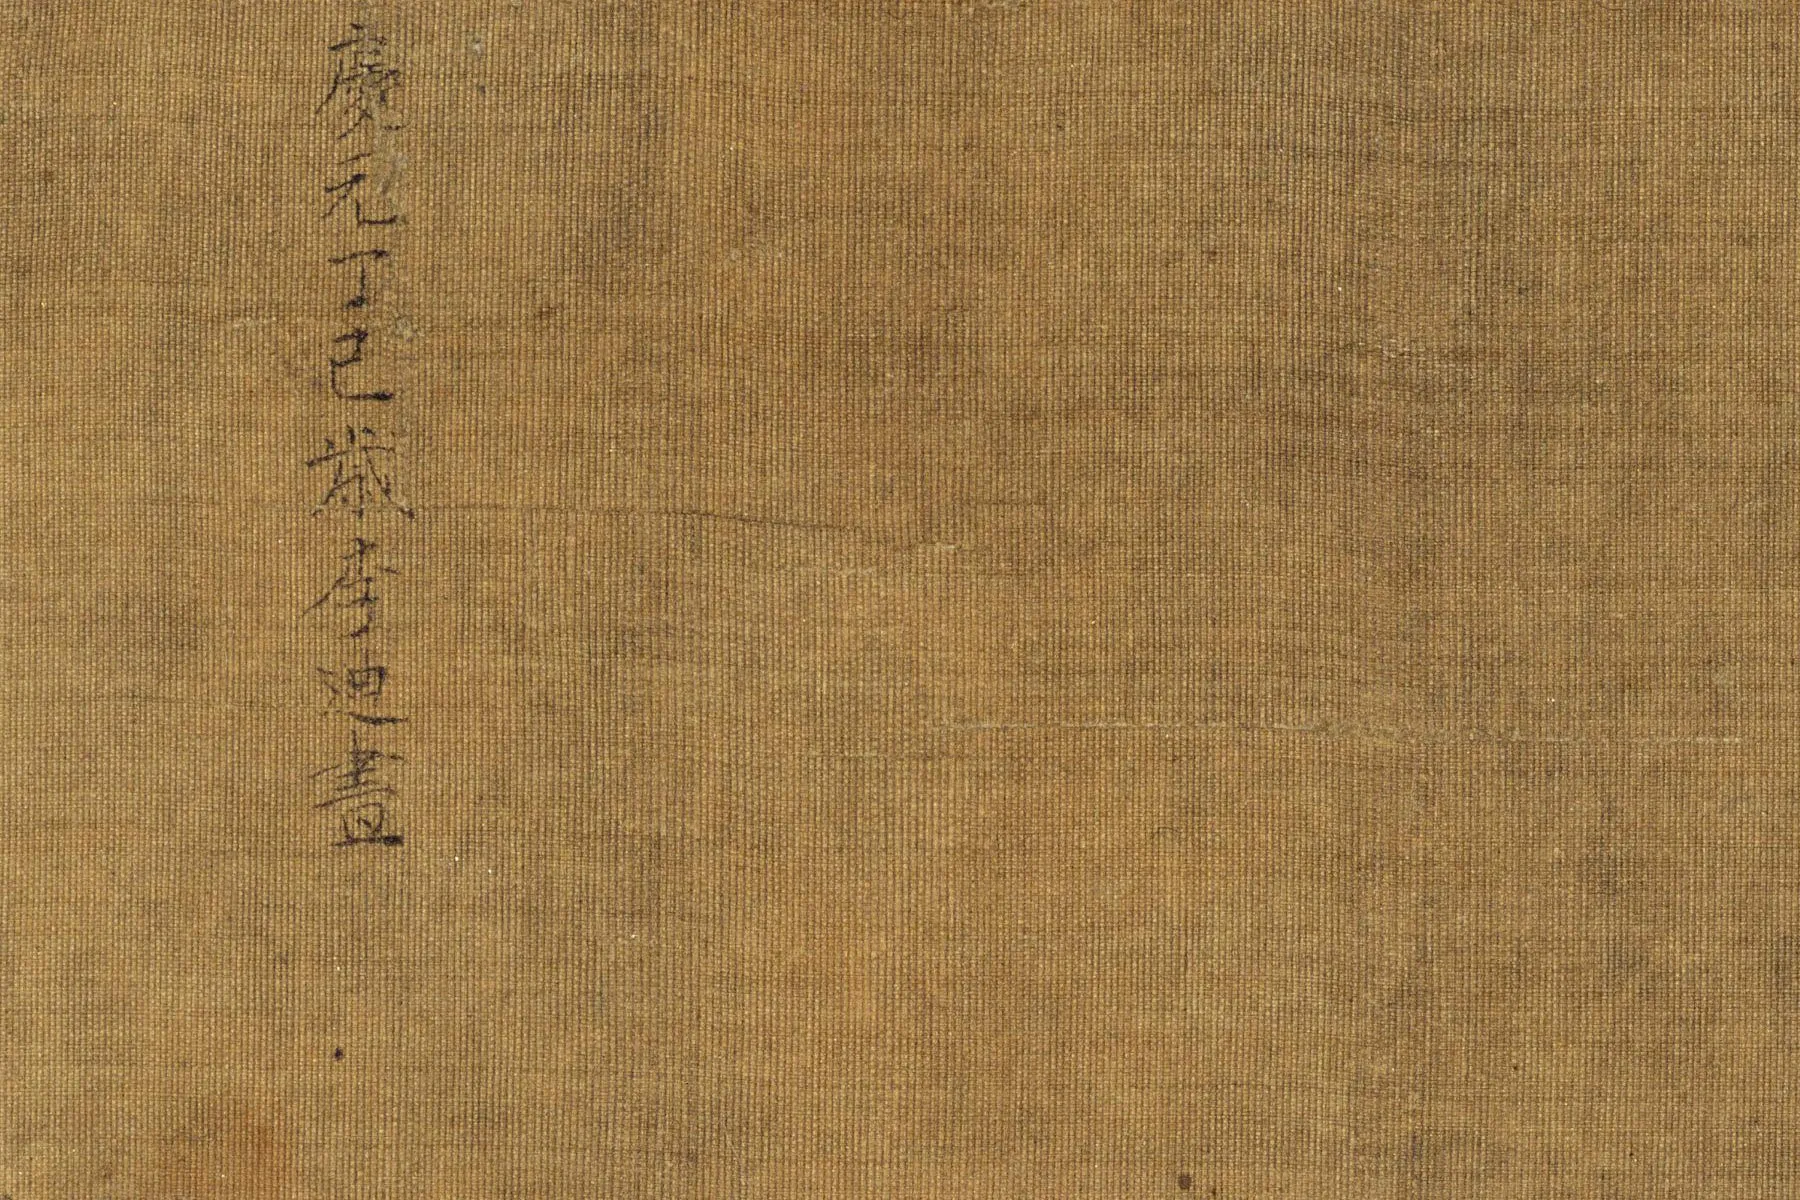 慶元丁巳歲李迪畫